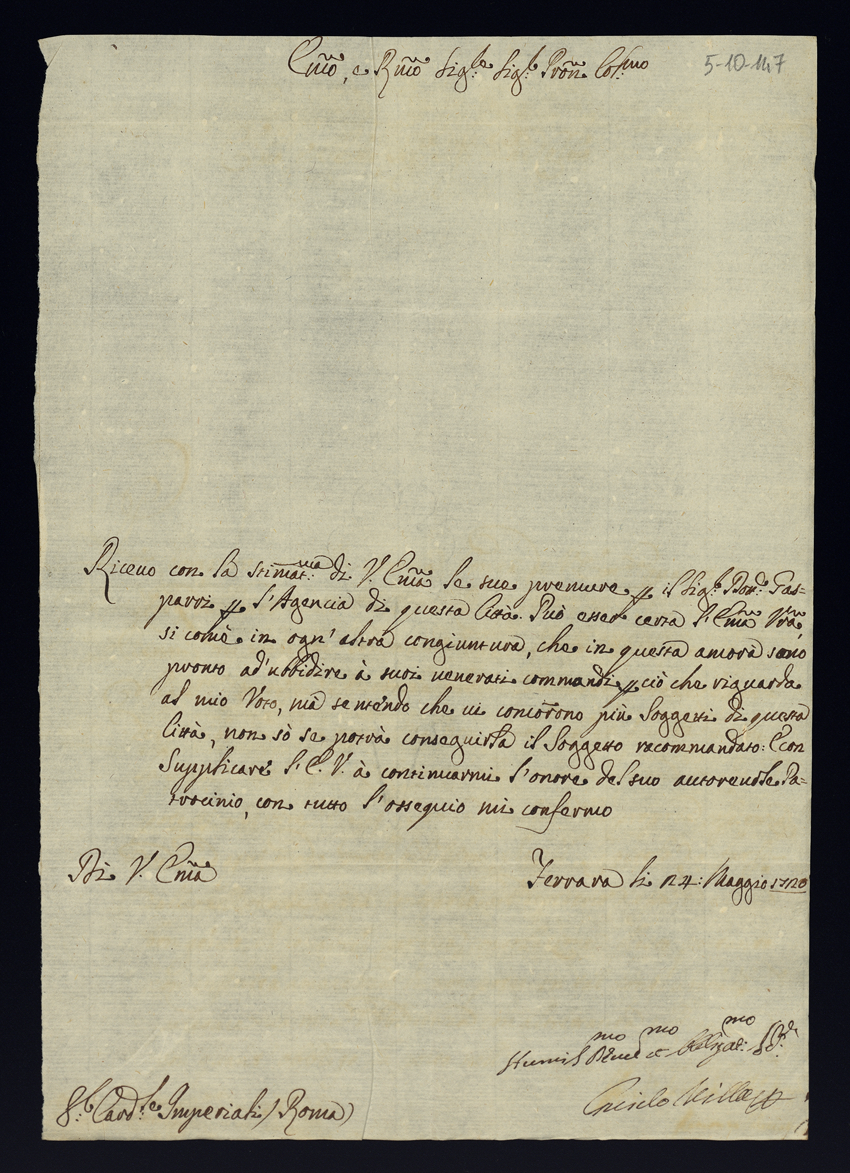 Em̃o, e Rm̃o Sig:re Sig:re Pron̄e Col:mo
5-10-147
Riceuo con la stimat:ma di V. Em̃a le sue premure per il Sig:re Dott:e Gas=
parri per l'Agencia di questa Città. Può esser certa l'Em̃a Vr̃a,
si come in ogn' altra congiuntura, che in questa ancora sono
pronto ad' ubbidire à suoi venerati commandi per ciò che riguarda
al mio Voto, mà sentendo che ui concorrono più Soggetti di questa
Città, non sò se potrà conseguirla il Soggetto racommandato: E con
Supplicare l'E. V. à continuarmi l'onore del suo autoreuole Pa=
trocinio, con tutto l'ossequio mi confermo
Di V. Em̃a
Ferrara li 24: Maggio 1720
Humil:mo Deu:mo et Obligat:mo
Villa
S:r Card:le Imperiali (Roma)